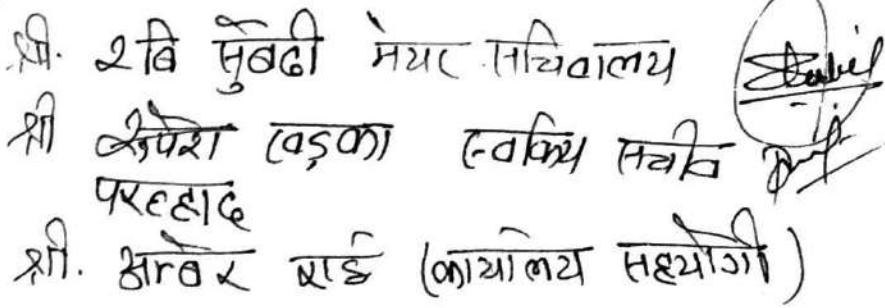 श्री. रवि सुवेदी मेयर सचिवालय
श्री रुपेश खड्का स्वकिय सचीव
परहहाद
श्री. आवेर राई (कार्यालय सहयोगी)